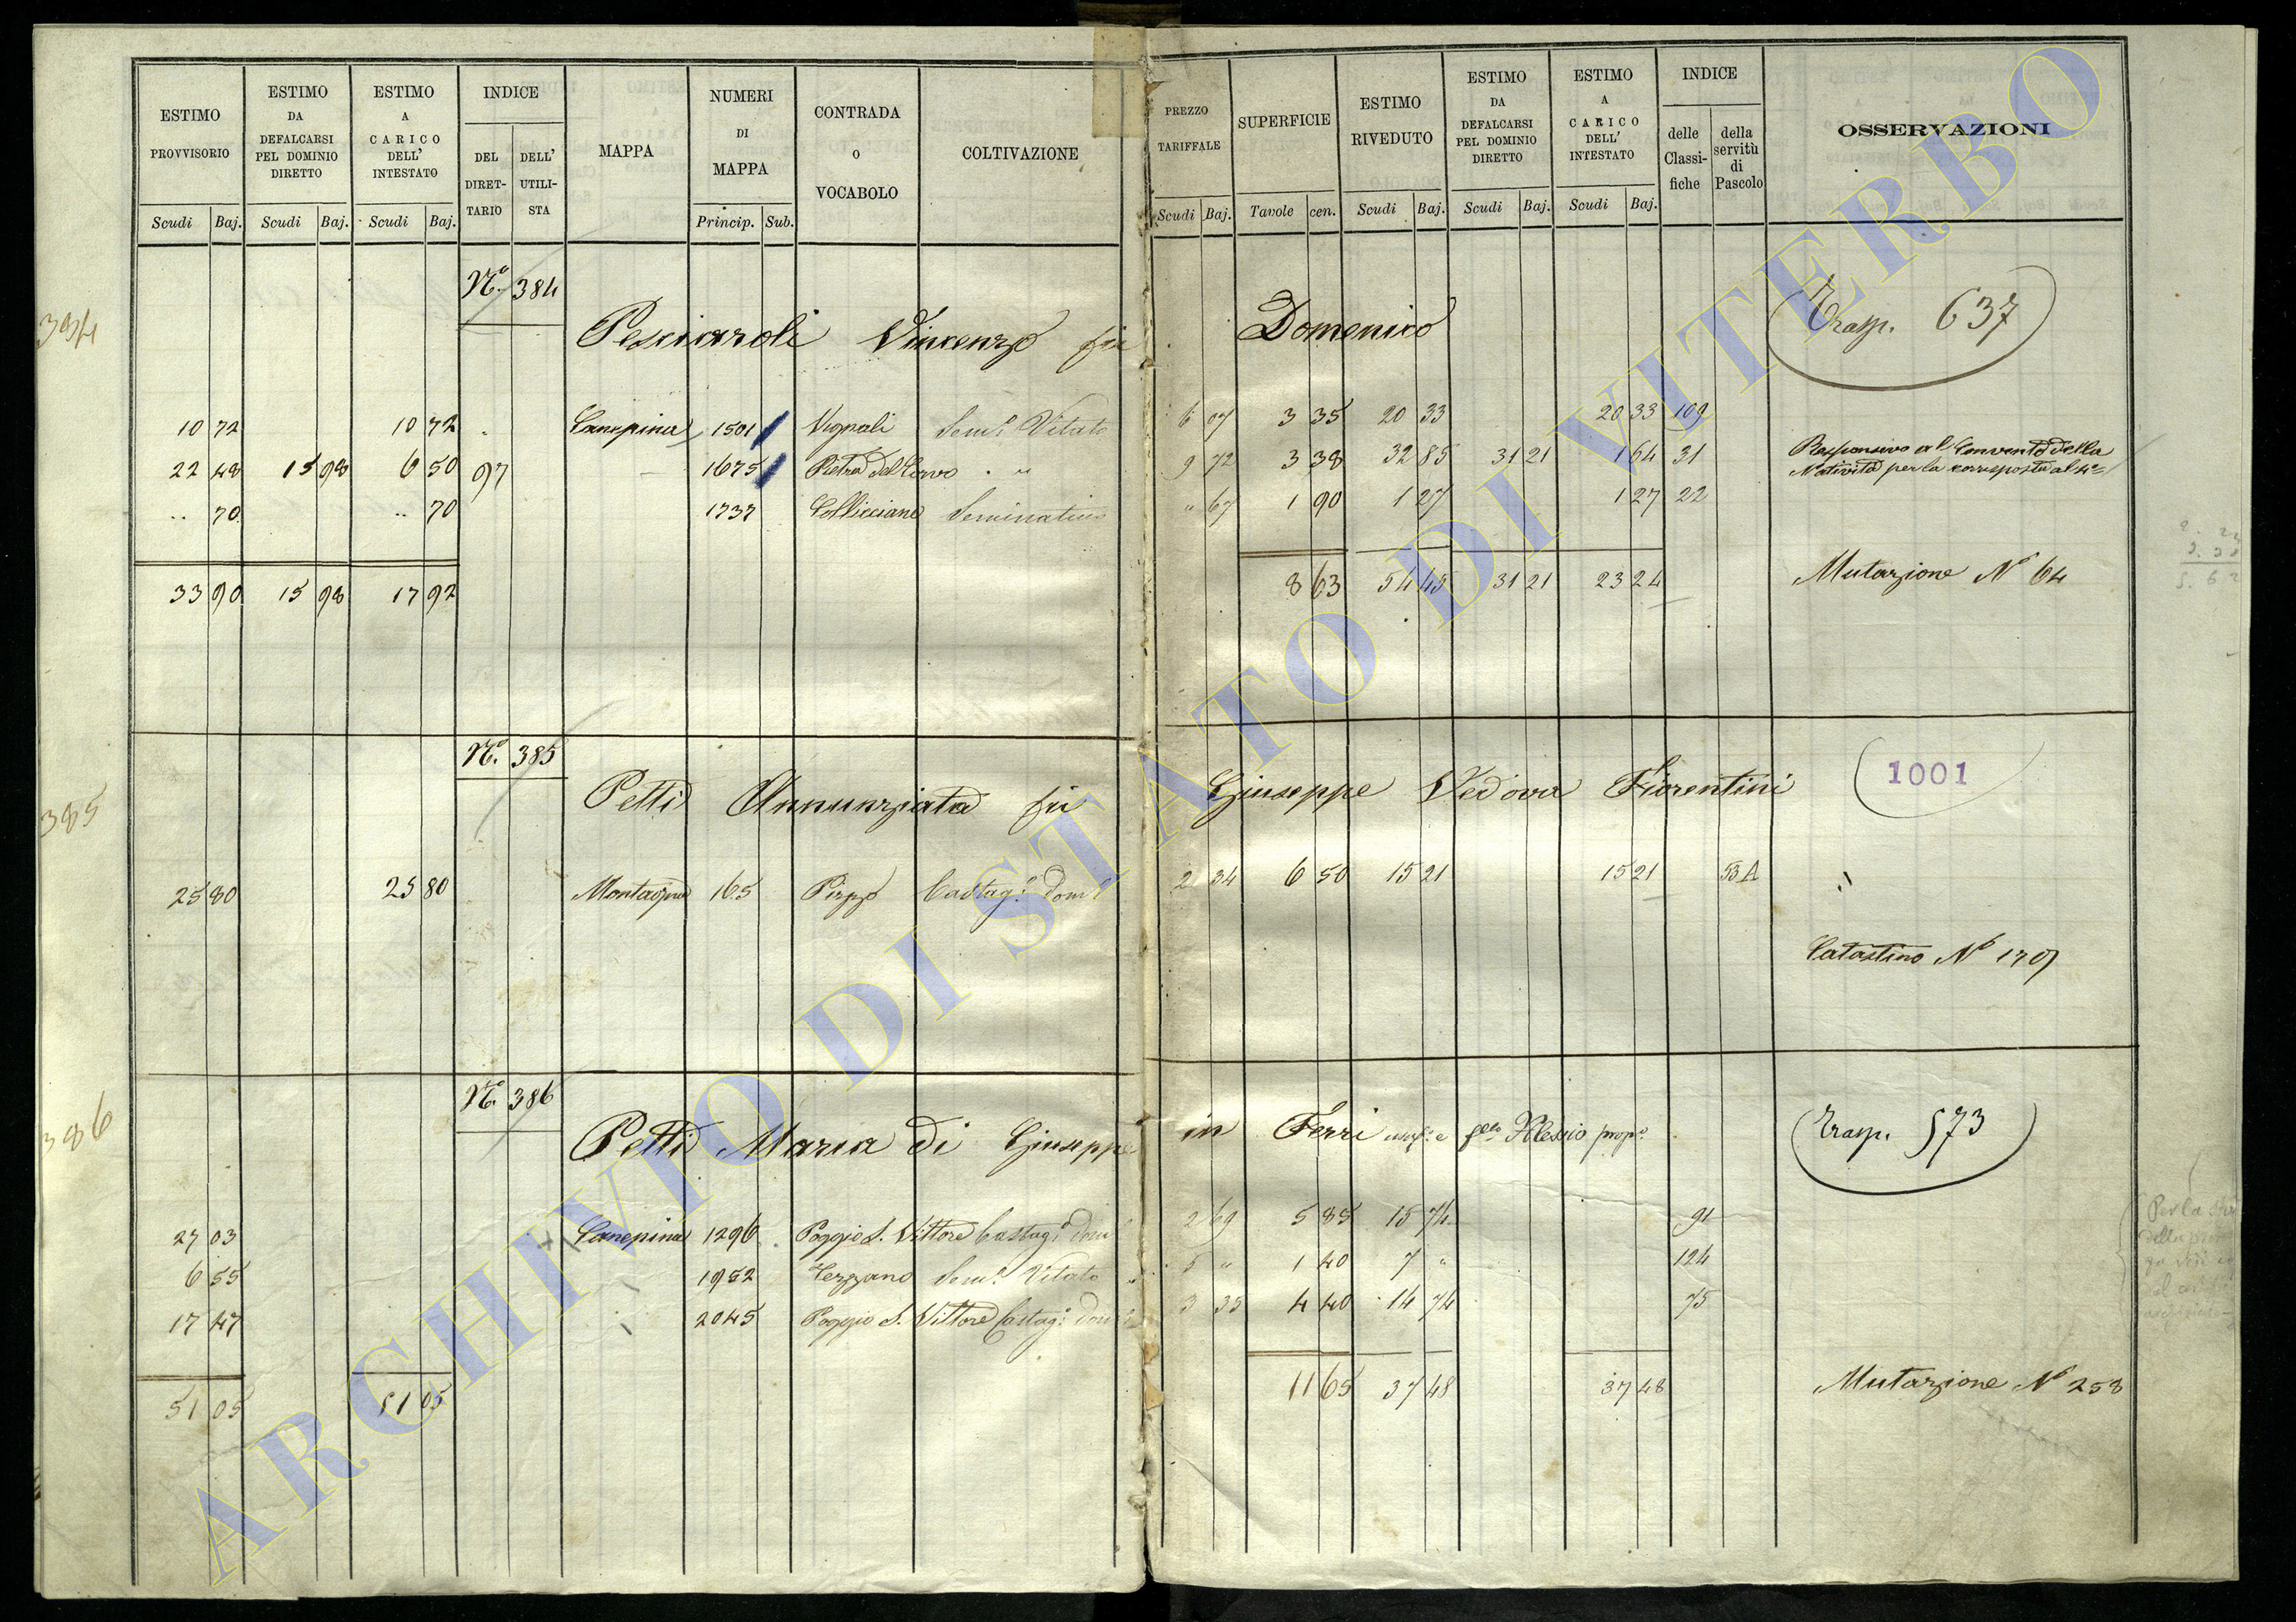 ESTIMO PROVVISORIO Scudi Baj.
ESTIMO DA DEFALCARSI PEL DOMINIO DIRETTO Scudi Baj.
ESTIMO A CARICO DELL' INTESTATO Scudi Baj.
INDICE DEL DIRET-TARIO DELL' UTILI-STA
MAPPA
NUMERI DI MAPPA Princip. Sub.
CONTRADA O VOCABOLO
COLTIVAZIONE
PREZZO TARIFFALE Scudi Baj.
SUPERFICIE Tavole cen.
ESTIMO RIVEDUTO Scudi Baj.
ESTIMO DA DEFALCARSI PEL DOMINIO DIRETTO Scudi Baj.
ESTIMO A CARICO DELL' INTESTATO Scudi Baj.
INDICE delle Classi-fiche della servitù di Pascolo
OSSERVAZIONI
N.º 384
Pesciaroli Vincenzo fu Domenico Trasp. 637
10 72 10 72 Canepina 1501 Vignali Sem.º Vitato 6 07 3 35 20 33 20 33 109
22 48 15 98 6 50 97 1675 Pietra del Corvo " 9 72 3 38 32 85 31 21 1 64 31 Responsivo al Convento della
Natività per la corrisposta al 4º
.. 70 .. 70 1737 Collicciano Seminativo " 67 1 90 1 27 1 27 22
33 90 15 98 17 92 8 63 54 45 31 21 23 24 Mutazione Nº 64
385
N.º 385
Petti Annunziata fu Giuseppe Vedova Fiorentini 1001
25 80 25 80 Montagna 165 Pizzo Castag.º dom. 2 34 6 50 15 21 15 21 53 A
Catastino Nº 179
386
N.º 386
Petti Maria di Giuseppe in Ferri usuf.ª e Alessio prop.º Trasp. 573
27 03 Canepina 1296 Poggio S. Vittore Castag.º dom. 2 69 5 85 15 74 91
6 55 1952 Terzano Sem.º Vitato 5 " 1 40 7 " 124
17 47 2045 Poggio S. Vittore Castag.º dom. 3 35 4 40 14 74 75
51 05 51 05 11 65 37 48 37 48 Mutazione Nº 258
ARCHIVIO DI STATO DI VITERBO